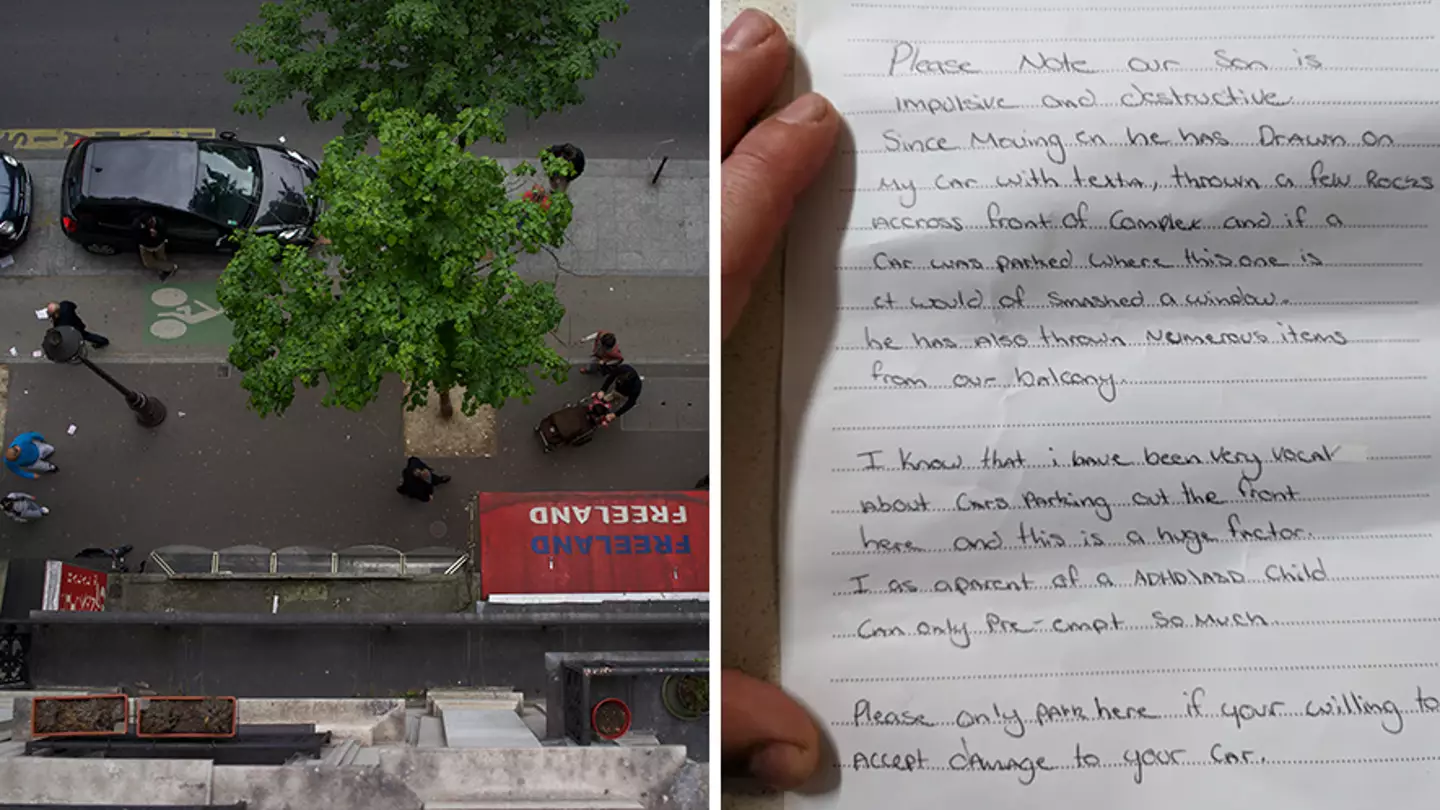 FREELAND
FREELAND
Please Note our Son is
impulsive and destructive
Since Moving in he has Drawn on
My Car with texta, thrown a few Rocks
Accross front of Complex and if a
Car was parked where this one is
it would of smashed a window.
he has Also thrown Numerous items
from our balcony.
I know that i have been very vocal
About Cars Parking out the front
here and this is a huge factor.
I as a parent of a ADHD\ASD Child
Can only Pre-empt So Much
Please only park here if your willing to
Accept damage to your Car.